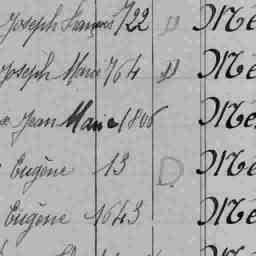 Joseph François 722 D Me
Joseph Marie 764 D Me
Jean Marie 1806 Me
Eugène 13 D Me
Eugène 1643 Me